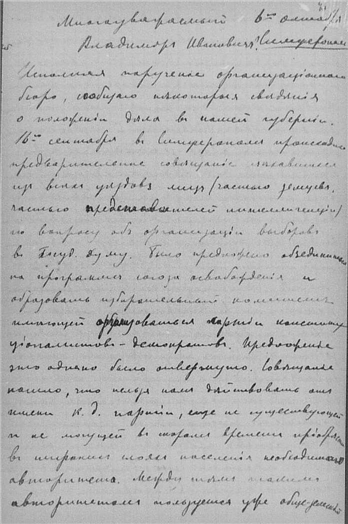 Многоуважаемый 6го октября
Владимиръ Ивановичъ! Симферополь
Исполняя порученіе организаціоннаго
бюро, сообщаю нѣкоторыя свѣдѣнія
о положеніи дѣла въ нашей губерніи.
16го сентября въ Симферополѣ происходило
предварительное совѣщаніе съѣхавшихся
изъ всѣхъ уѣздовъ лицъ (частью земцевъ,
частью представителей интеллигенціи)
по вопросу объ организаціи выборовъ
въ Госуд. думу. Было предложено объединиться
на программѣ союза освобожденія и
образовать избирательный комитетъ
имѣющей образоваться партіи конституц
іоналистовъ-демократовъ. Предложеніе
это однако было отвергнуто. Совѣщаніе
нашло, что нельзя намъ дѣйствовать отъ
имени к. д. партіи, еще не существующей
и не могущей въ скоромъ времени пріобрѣсти
въ широкихъ слояхъ населенія необходимаго
авторитета. Между тѣмъ такимъ
авторитетомъ пользуется уже